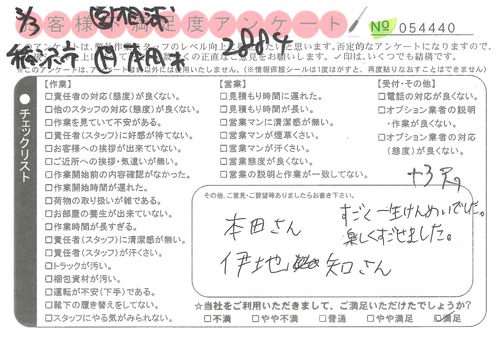 お客様不満足度アンケート
№ 054440
2884
チェックリスト
【作業】
□責任者の対応(態度)が良くない。
□他のスタッフの対応(態度)が良くない。
□作業を見ていて不安がある。
□責任者(スタッフ)に好感が持てない。
□お客様への挨拶が出来ていない。
□ご近所への挨拶・気遣いが無い。
□作業開始前の内容確認がなかった。
□作業開始時間が遅れた。
□荷物の取り扱いが雑である。
□お部屋の養生が出来ていない。
□作業時間が長すぎる。
□責任者(スタッフ)に清潔感が無い。
□責任者(スタッフ)が汗くさい。
□トラックが汚い。
□梱包資材が汚い。
□運転が不安(下手)である。
□靴下の履き替えをしてない。
□スタッフにやる気がみられない。
【営業】
□見積もり時間に遅れた。
□見積もり時間が長い。
□営業マンに清潔感が無い。
□営業マンが煙草くさい。
□営業マンが汗くさい。
□営業態度が良くない。
□営業の説明と作業が一致してない。
【受付・その他】
□電話の対応が良くない。
□オプション業者の説明
・作業が良くない。
□オプション業者の対応
(態度)が良くない。
その他、ご意見・ご要望等ありましたらお書き下さい。
本田さん
伊地知さん
すごく一生けんめいでした。
楽しくすごせました。
☆当社をご利用いただきまして、ご満足いただけたでしょうか?
□不満 □やや不満 □普通 □やや満足 □満足